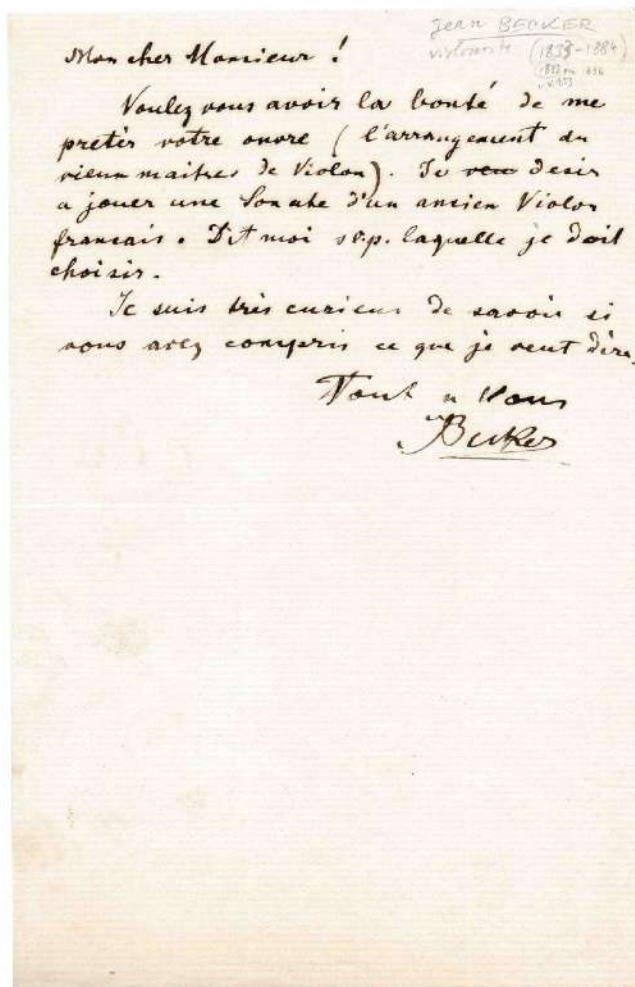 Jean BECKER
violoniste (1833-1884)
Mon cher Monsieur !
Voulez vous avoir la bonté de me
pretér votre ouvre (l'arrangement du
vieux maitres de Violon). Je veu desir
a jouer une Sonate d'un ancien Violon
francais. Dit moi s.v.p. laquelle je doit
choisir.
Je suis très curieux de savoir si
vous avez compris ce que je veut dire.
Tout a Vous
JBecker